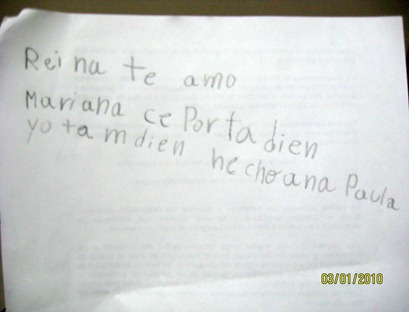 Reina te amo
Mariana ce Porta dien
yo tamdien hecho ana Paula
03/01/2010